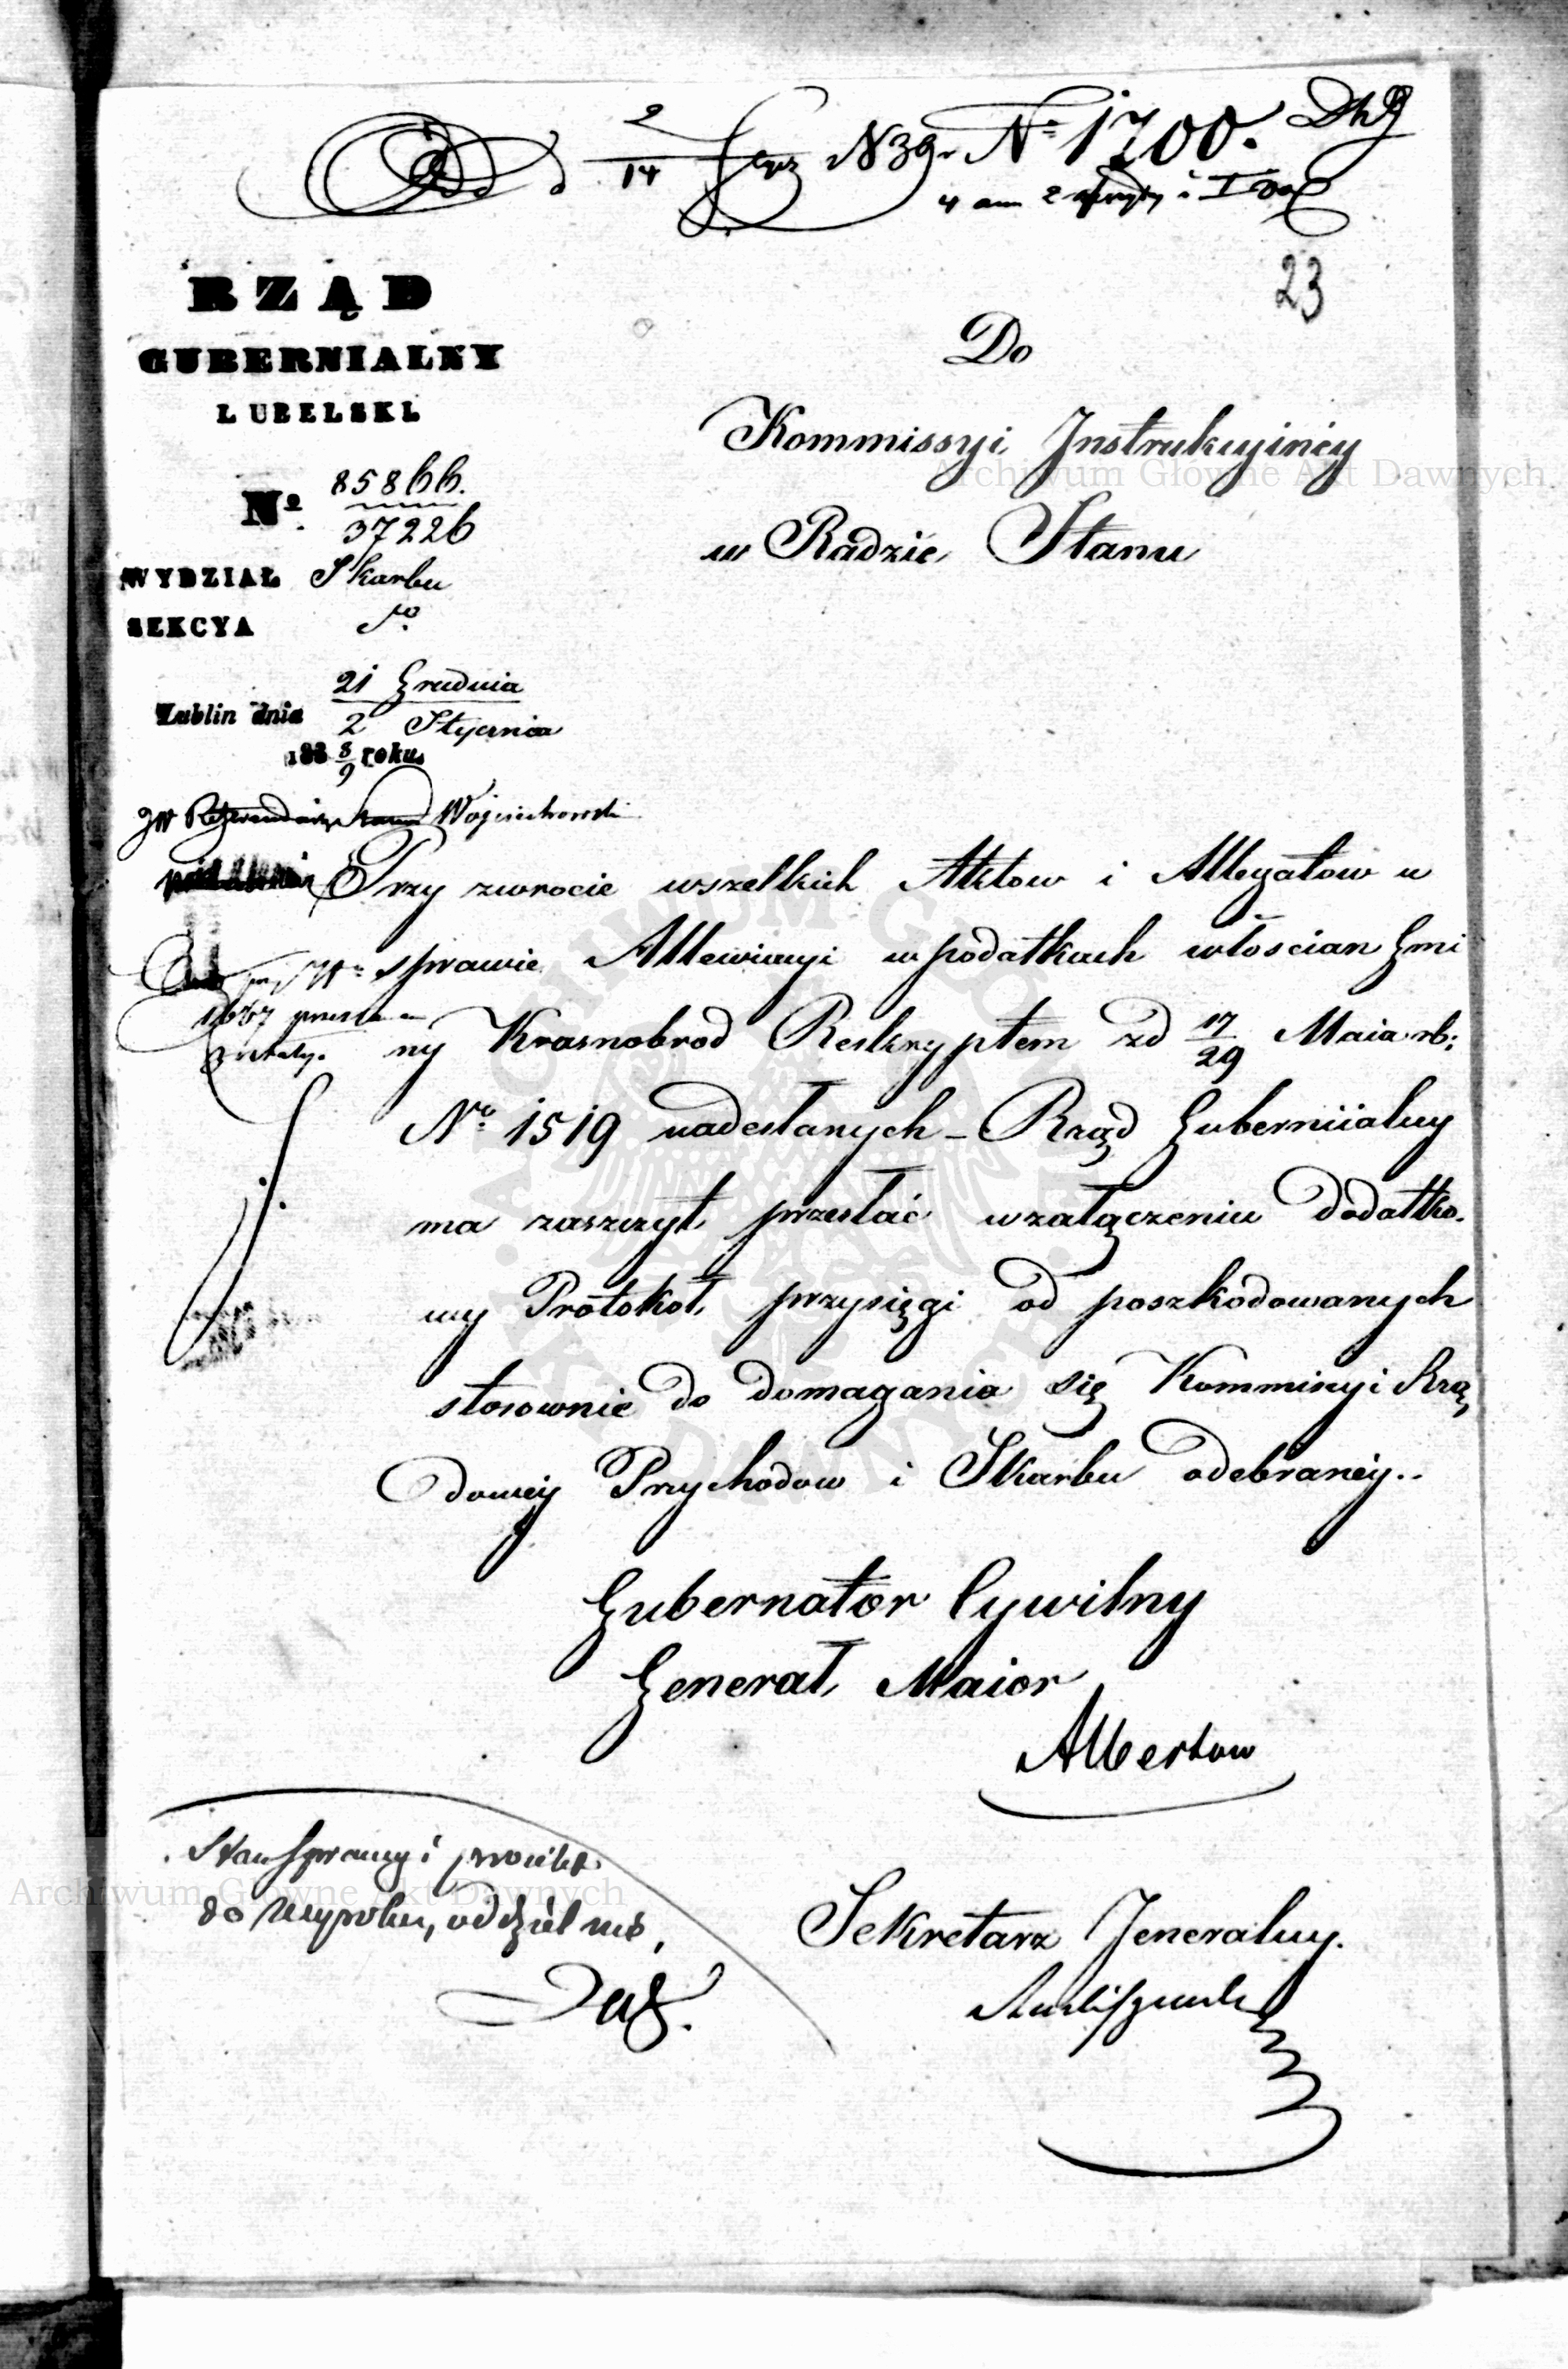 2
14
N 39. Nº 1700.
23
RZĄD
GUBERNIALNY
LUBELSKI.
Nº 85866.
37226
WYDZIAŁ Skarbu
SEKCYA
Lublin dnia 21 Grudnia
2 Stycznia
183 8/9 roku
Wojciechowski
Do
Kommissyi Instrukcyinéy
w Radzie Stanu
Przy zwrocie wszelkich Aktow i Allegatow w
sprawie Allewiacyi w podatkach włościan Gmi
ny Krasnobrod Reskryptem zd 17/29 Maia rb:
Nº 1519 nadesłanych - Rząd Guberniialny
ma zaszczyt przesłać w załączeniu dodatko.
wy Protokoł przysięgi od poszkodowanych
stosownie do domagania się Kommissyi Rzą
dowéy Przychodow i Skarbu odebranéy..
Gubernator Cywilny
Generał Maior
Albertow
Stan sprawy i
do wyroku, oddzielnie,
Sekretarz Jeneralny.
Archiwum Główne Akt Dawnych
Archiwum Główne Akt Dawnych
ARCHIWUM GŁÓWNE AKT DAWNYCH